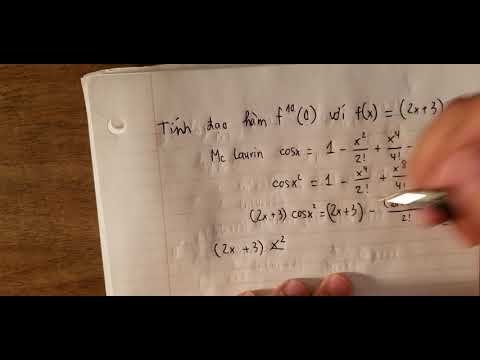 Tính đạo hàm f¹⁰(0) với f(x) = (2x+3)
Mc Laurin cosx = 1 - x²/2! + x⁴/4! -
cosx² = 1 - x⁴/2! + x⁸/4!
(2x+3) cosx² = (2x+3) - 2!
(2x+3) x²